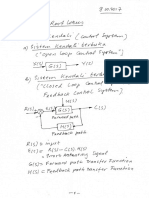 Root Locus
Kendali (Control System)
a) Sistem Kendali Terbuka
"Open Loop Control System"
R(s)
G(s)
Y(s)
b) Sistem Kendali Tertutup
"Closed Loop Control System"
Feedback Control System"
H(s)
R(s)
G(s)
C(s)
Forward path
Feedback path
R(s) = input
E(s) = R(s) - C(s) H(s)
= Error Actuating Signal
G(s) = Forward path Transfer Function
H(s) = Feedback path Transfer Function